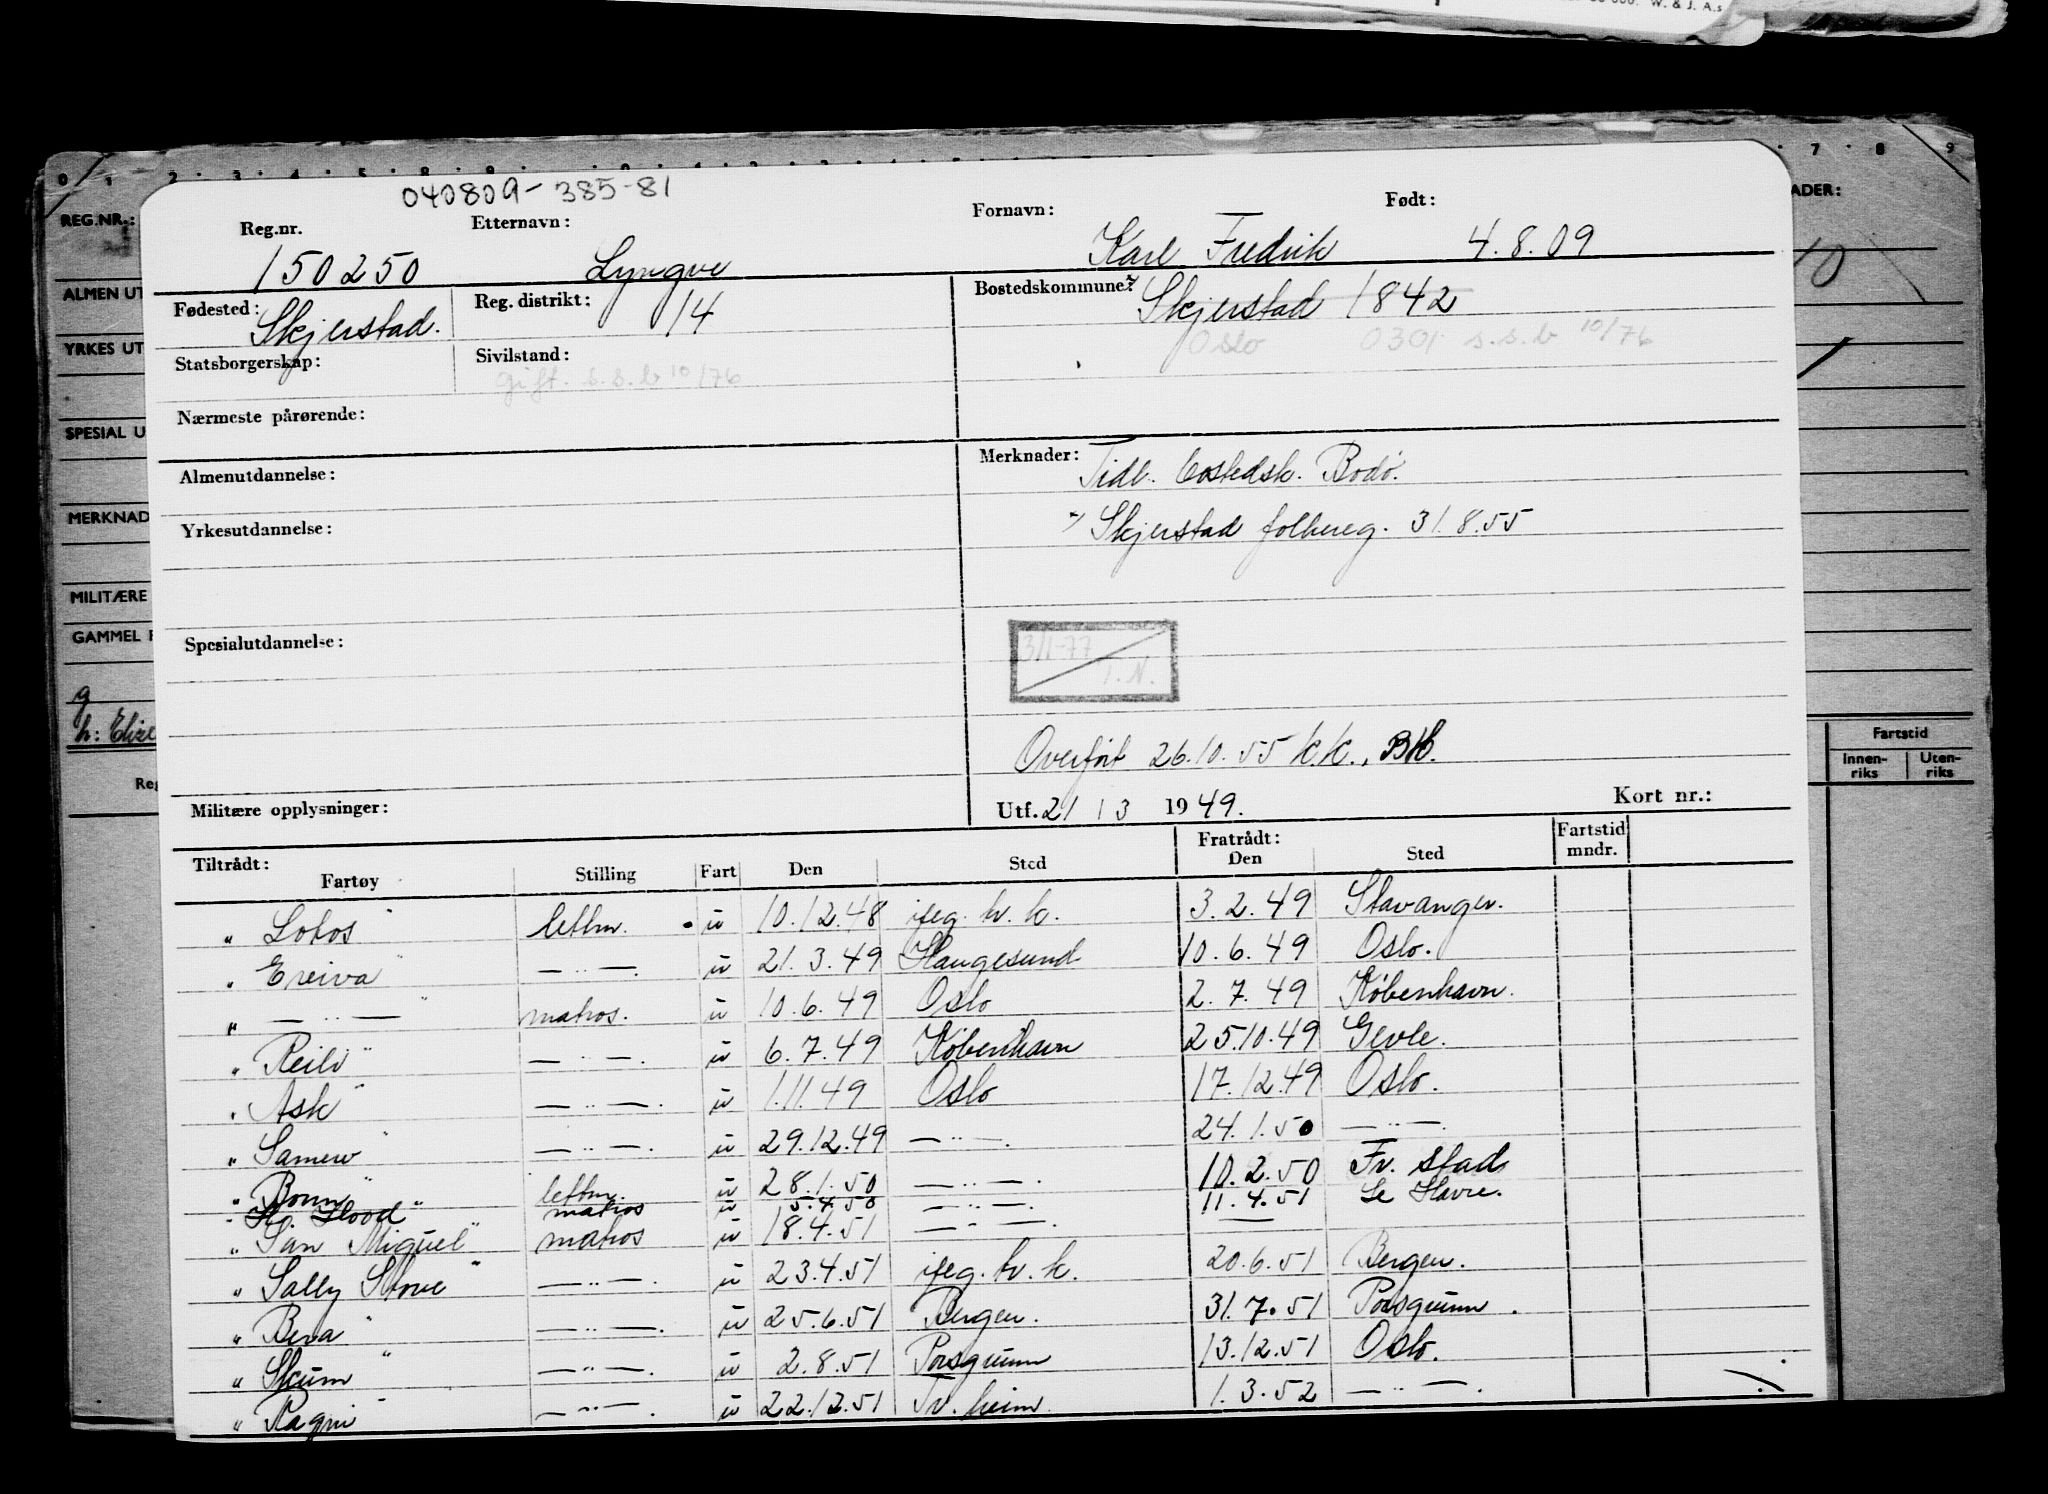 W. & J. A.s
0 1 2 3 4 5 8 9
7 8 9
040809-385-81
REG.NR.:
Reg.nr. Etternavn: Fornavn: Født:
ADER:
150250 Lyngve Karl Fredrik 4.8.09
10
ALMEN UT
Fødested: Skjerstad. Reg. distrikt: 14 Bostedskommune: x Skjerstad 1842
Oslo 0301 s.s.b 10/76
YRKES UT
Statsborgerskap: Sivilstand: gift. s.s.b 10/76
Nærmeste pårørende:
SPESIAL U
Almenutdannelse: Merknader: Tidl. bostedsk. Bodø.
MERKNAD
Yrkesutdannelse: x/ Skjerstad folkereg. 31.8.55
MILITÆRE
GAMMEL
Spesialutdannelse: 3/1-77 T.N.
g
h: Elize
Overført 26.10.55 k.k., BH.
Fartstid
Innen-riks Uten-riks
Reg
Militære opplysninger: Utf. 21 / 3 1949. Kort nr.:
Tiltrådt: Fratrådt: Fartstid mndr.
Fartøy Stilling Fart Den Sted Den Sted
"Lotos" lettm. u 10.12.48 ifeg. h. k. 3.2.49 Stavanger.
"Ereiva" — " —. u 21.3.49 Haugesund 10.6.49 Oslo.
" — " — " matros. u 10.6.49 Oslo 2.7.49 København.
"Reili" — " —. u 6.7.49 København 25.10.49 Gevle.
"Ask" — " —. u 1.11.49 Oslo 17.12.49 Oslo.
"Samuw" — " —. u 29.12.49 — " —. 24.1.50 — " —.
"Bonn" lettm. u 28.1.50 — " —. 10.2.50 Fr. stad
"H. Hood" matros u 5.4.50 — " —. 11.4.51 Le Havre.
"San Miguel" matros u 18.4.51 — " —. —
"Sally Stove" — " —. u 23.4.51 ifeg. h. k. 20.6.51 Bergen.
"Bera" — " —. u 25.6.51 Bergen. 31.7.51 Porsgrunn.
"Skum" — " —. u 2.8.51 Porsgrunn 13.12.51 Oslo.
"Ragni" — " —. u 22.12.51 Tr. heim 1.3.52 — " —.